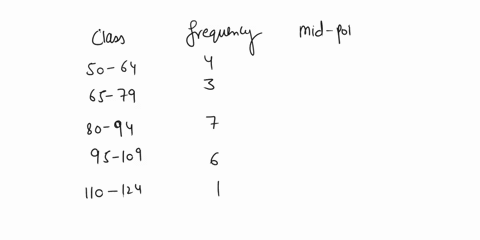 Class frequency mid-poi
50-64 4
65-79 3
80-94 7
95-109 6
110-124 1